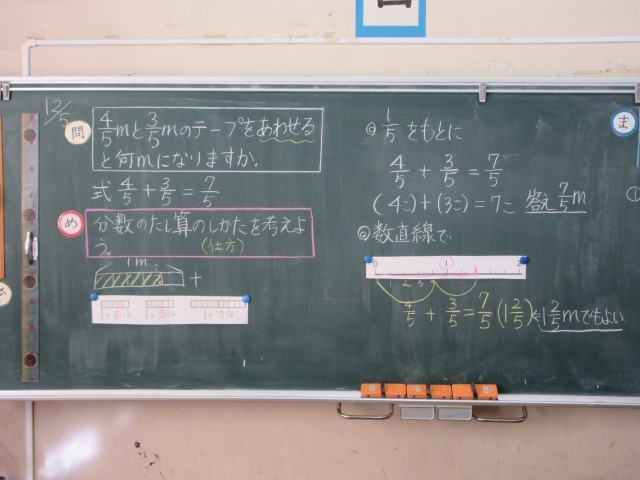 12/5
問
4/5mと3/5mのテープをあわせる
と何mになりますか。
式 4/5+3/5=7/5
め
分数のたし算のしかたを考えよ
う。
(仕方)
1m
+
1/5をもとに
4/5+3/5=7/5
(4こ)+(3こ)=7こ 答え7/5m
数直線で
0 1 2
1 2 3
4/5+3/5=7/5(1 2/5)
1 2/5mでもよい
ま